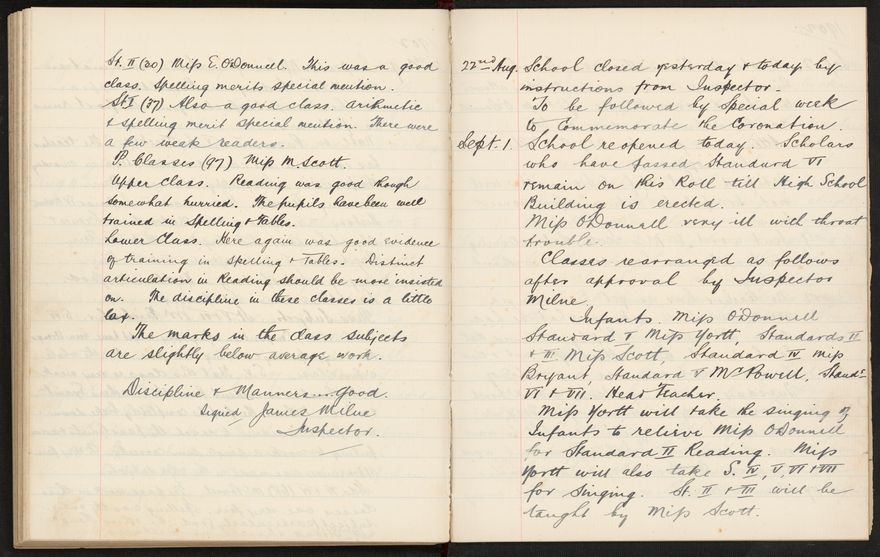 St. II (20) Miss E. O'Donnell. This was a good
class. Spelling merits special mention.
St. I (37) Also a good class. Arithmetic
& spelling merit special mention. There were
a few weak readers.
P. Classes (97) Miss M. Scott.
Upper Class. Reading was good though
somewhat hurried. The pupils have been well
trained in Spelling & Tables.
Lower Class. Here again was good evidence
of training in Spelling & Tables. Distinct
articulation in Reading should be more insisted
on. The discipline in these classes is a little
lax.
The marks in the class subjects
are slightly below average work.
Discipline & Manners....Good.
Signed James Milne
Inspector.
22nd Aug. School closed yesterday & today by
instructions from Inspector.
To be followed by Special week
to Commemorate the Coronation.
Sept. 1 School reopened today. Scholars
who have passed Standard VI
remain on this Roll till High School
Building is erected.
Miss O'Donnell very ill with throat
trouble.
Classes rearranged as follows
after approval by Inspector
Milne
Infants. Miss O'Donnell
Standard I Miss Yortt, Standards II
& III Miss Scott, Standard IV Miss
Bryant, Standard V Mr Powell, Stands
VI & VII. Head Teacher.
Miss Yortt will take the singing of
Infants to relieve Miss O'Donnell
for Standard II Reading. Miss
Yortt will also take S. IV, V, VI & VII
for Singing. St. II & III will be
taught by Miss Scott.